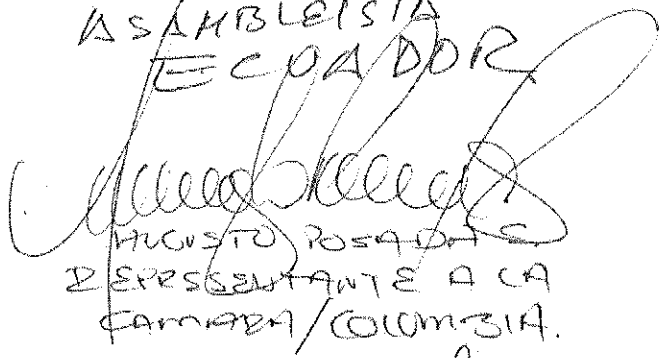 ASAMBLEISTA
ECUADOR
AUGUSTO POSADA S.
REPRESENTANTE A LA
CAMARA/COLOMBIA.